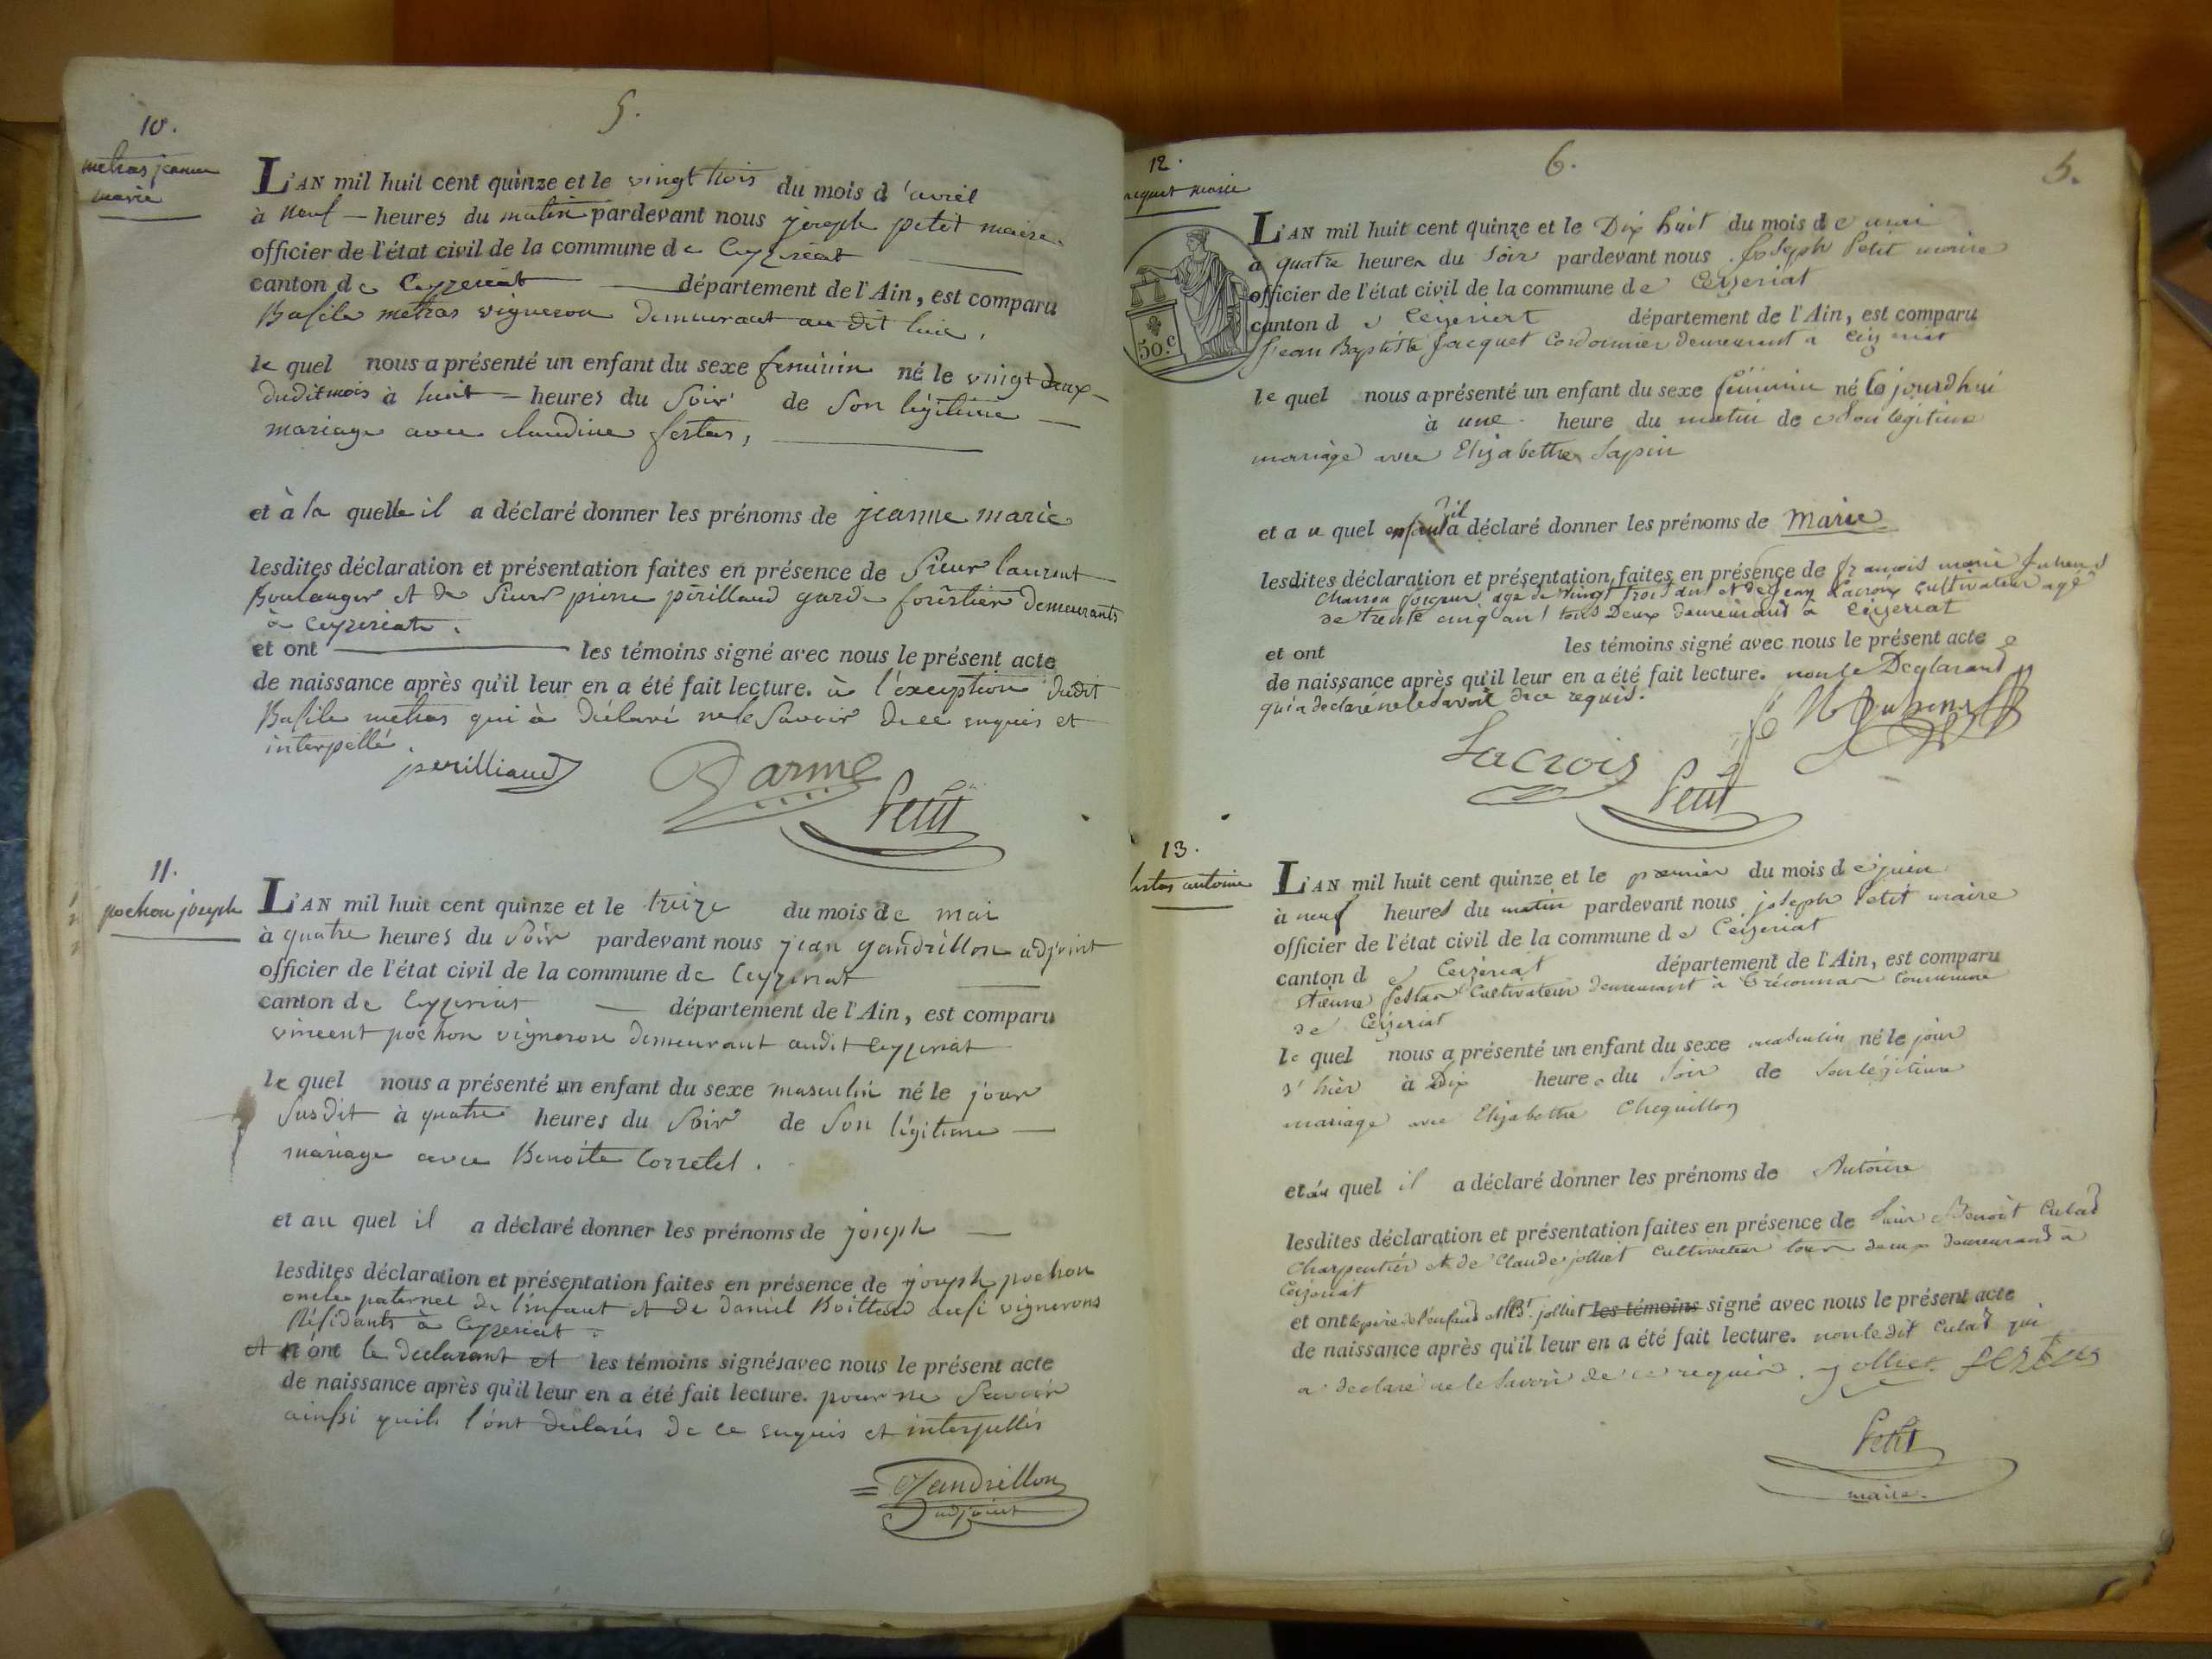 5.
10.
metras jeanne
marie
L'AN mil huit cent quinze et le vingt trois du mois d'avril
à neuf heures du matin pardevant nous joseph petit maire
officier de l'état civil de la commune de Ceyzeriat
canton de Ceyzeriat département de l'Ain, est comparu
Basile metras vigneron demeurant au dit lieu,
le quel nous a présenté un enfant du sexe feminin né le vingt deux
dudit mois à huit heures du Soir de Son légitime
mariage avec claudine festas,
et à la quelle il a déclaré donner les prénoms de jeanne marie
lesdites déclaration et présentation faites en présence de Sieur laurent
Boulanger et de Sieur pierre périlliaud garde forêstier demeurants
à ceyzeriat.
et ont les témoins signé avec nous le présent acte
de naissance après qu'il leur en a été fait lecture. à l'exception dudit
Basile metras qui à déclaré ne le Savoir de ce enquis et
interpellé.
perilliaud Darme Petit
11.
pochon joseph
L'AN mil huit cent quinze et le treize du mois de mai
à quatre heures du Soir pardevant nous jean gandrillon adjoint
officier de l'état civil de la commune de Ceyzeriat
canton de Ceyzeriat département de l'Ain, est comparu
vincent pochon vigneron demeurant audit Ceyzeriat
le quel nous a présenté un enfant du sexe masculin né le jour
Susdit à quatre heures du Soir de Son légitime
mariage avec Benoite Corretel.
et au quel il a déclaré donner les prénoms de joseph
lesdites déclaration et présentation faites en présence de joseph pochon
oncle paternel de l'enfant et de daniel Boillard aussi vignerons
Résidants à Ceyzeriat.
et n'ont le declarant et les témoins signés avec nous le présent acte
de naissance après qu'il leur en a été fait lecture. pour ne Savoir
ainsi quils l'ont declarés de ce enquis et interpellés
Gandrillon
adjoint
6.
5.
12.
acquet marie
50.c
L'AN mil huit cent quinze et le Dix huit du mois de mai
a quatre heures du Soir pardevant nous Joseph Petit maire
officier de l'état civil de la commune de Ceizeriat
canton de Ceyzeriat département de l'Ain, est comparu
Jean Baptiste Jacquet Cordonnier demeurant a Ceizeriat
le quel nous a présenté un enfant du sexe féminin né le jourdhui
à une heure du matin de Son légitime
mariage avec Elizabethe Sapin
et a u quel enfant il a déclaré donner les prénoms de Marie
lesdites déclaration et présentation faites en présence de francois marie Juhens
age de vingt trois ans et de jean Lacroix cultivateur agé
de trente cinq ans tous Deux demeurant a Ceizeriat
et ont les témoins signé avec nous le présent acte
de naissance après qu'il leur en a été fait lecture. non le Déclarand
qui a declaré ne le savoir de ce requis.
Lacrois Petit
13.
festas antoine
L'AN mil huit cent quinze et le premier du mois de juin
à neuf heures du matin pardevant nous joseph Petit maire
officier de l'état civil de la commune de Ceizeriat
canton de Ceizeriat département de l'Ain, est comparu
etienne festas Cultivateur demeurant à Tréconnas Commune
de Ceizeriat
le quel nous a présenté un enfant du sexe masculin né le jour
d'hier à Dix heures du Soir de Son légitime
mariage avec Elizabethe Chequillon
et au quel il a déclaré donner les prénoms de Antoine
lesdites déclaration et présentation faites en présence de Sieur Benoit Culad
Charpentier et de Claude jolliet cultivateur tous deux demeurand a
Ceizeriat
et ont le père de l'enfand jolliet les témoins signé avec nous le présent acte
de naissance après qu'il leur en a été fait lecture. non le dit Culad qui
a declaré ne le savoir de ce requis. jolliet festas
Petit
maire.